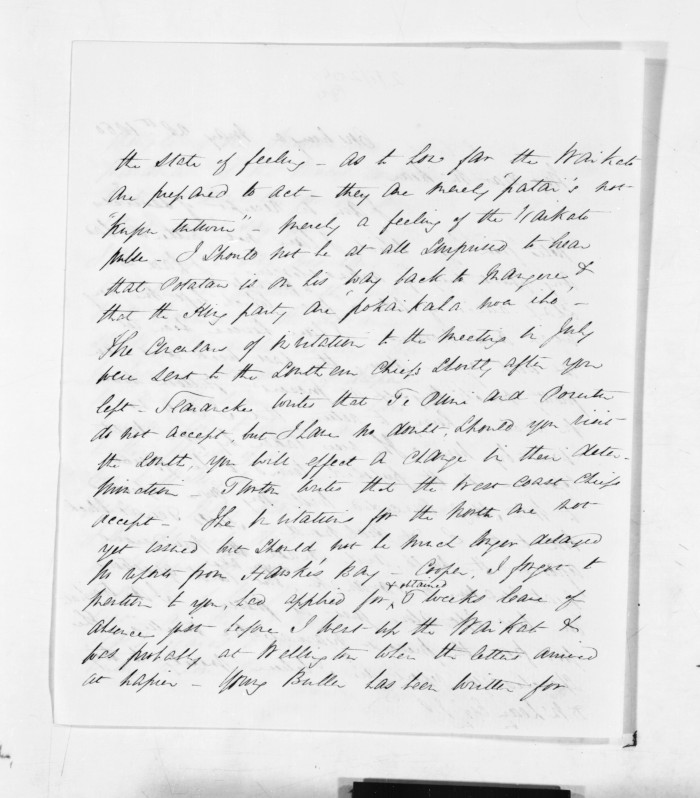 the state of feeling - as to how far the Waikato
are prepared to act - they are merely "patai"s not
"Kupu tuturu" - merely a feeling of the Waikato
pulse - I should not be at all surprised to hear
that Potatau is on his way back to Mangere &
that the King party are "pokaikaha noa iho" -
The Circulars of invitation to the meeting in July
were sent to the Southern Chiefs shortly after you
left - Searancke writes that Te Puni and Porutu
do not accept, but I have no doubt, should you visit
the South, you will effect a change in their deter-
mination - Turton writes that the West Coast Chiefs
accept - The invitations for the North are not
yet issued but should not be much longer delayed
No reports from Hawke's Bay - Cooper, I forgot to
mention to you, had applied for & obtained weeks leave of
absence just before I went up the Waikato &
was probably at Wellington when the letters arrived
at Napier - Young Buller has been written for